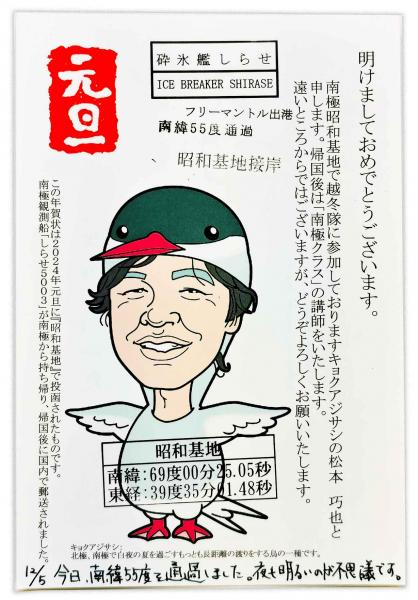 明けましておめでとうございます。
南極昭和基地で越冬隊に参加しておりますキョクアジサシの松本 巧也と
申します。帰国後は「南極クラス」の講師をいたします。
遠いところからではございますが、どうぞよろしくお願いいたします。
砕氷艦しらせ
ICE BREAKER SHIRASE
フリーマントル出港
南緯55度通過
昭和基地接岸
元旦
この年賀状は2024年元旦に『昭和基地』で投函されたものです。
南極観測船「しらせ5003」が南極から持ち帰り、帰国後に国内で郵送されました。
昭和基地
南緯:69度00分25.05秒
東経:39度35分01.48秒
キョクアジサシ:
北極、南極で白夜の夏を過ごすもっとも長距離の渡りをする鳥の一種です。
12/5 今日、南緯55度を通過しました。夜も明るいのが不思議です。